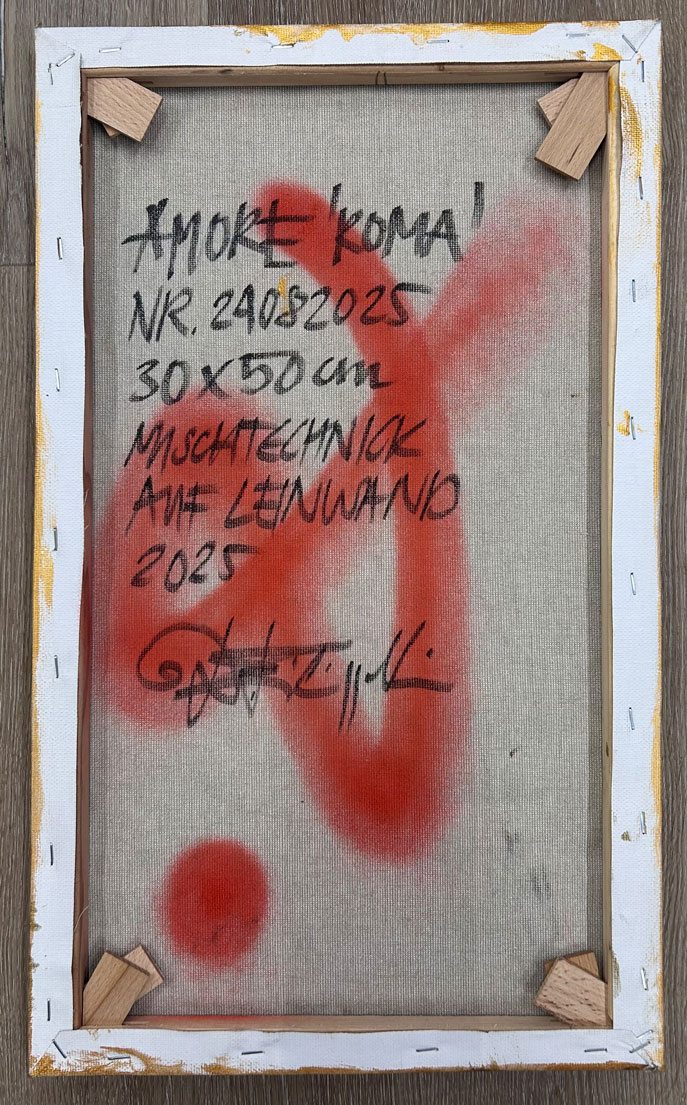 AMORE 'ROMA'
NR. 29082025
30 x 50 cm
MISCHTECHNICK
AUF LEINWAND
2025